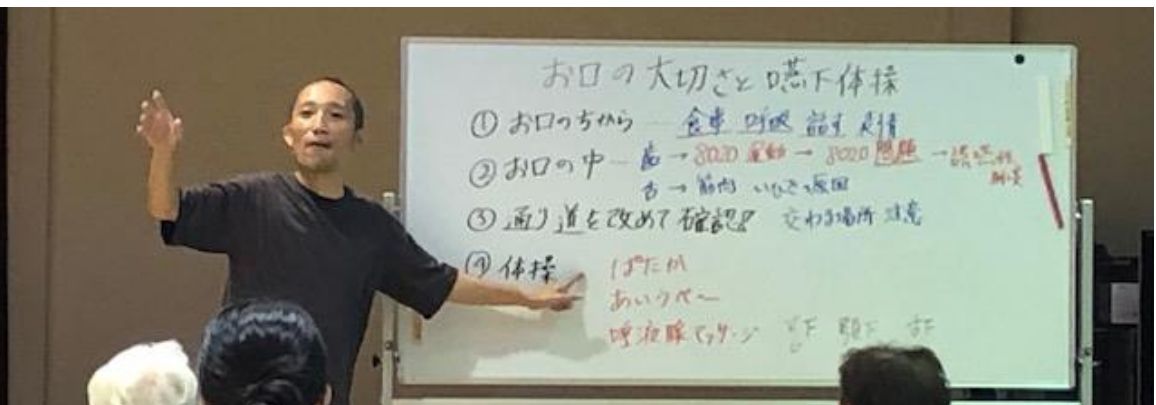 お口の大切さと嚥下体操
① お口のちから 食事 呼吸 話す 表情
② お口の中 歯 → 8020 運動 → 8020 問題 → 誤嚥性
舌 → 筋肉 いびき 原因
③ 通り道を改めて確認!! 交わる場所 注意
④ 体操 ぱたか
あいうべ〜
唾液腺マッサージ 耳下 顎下 舌下